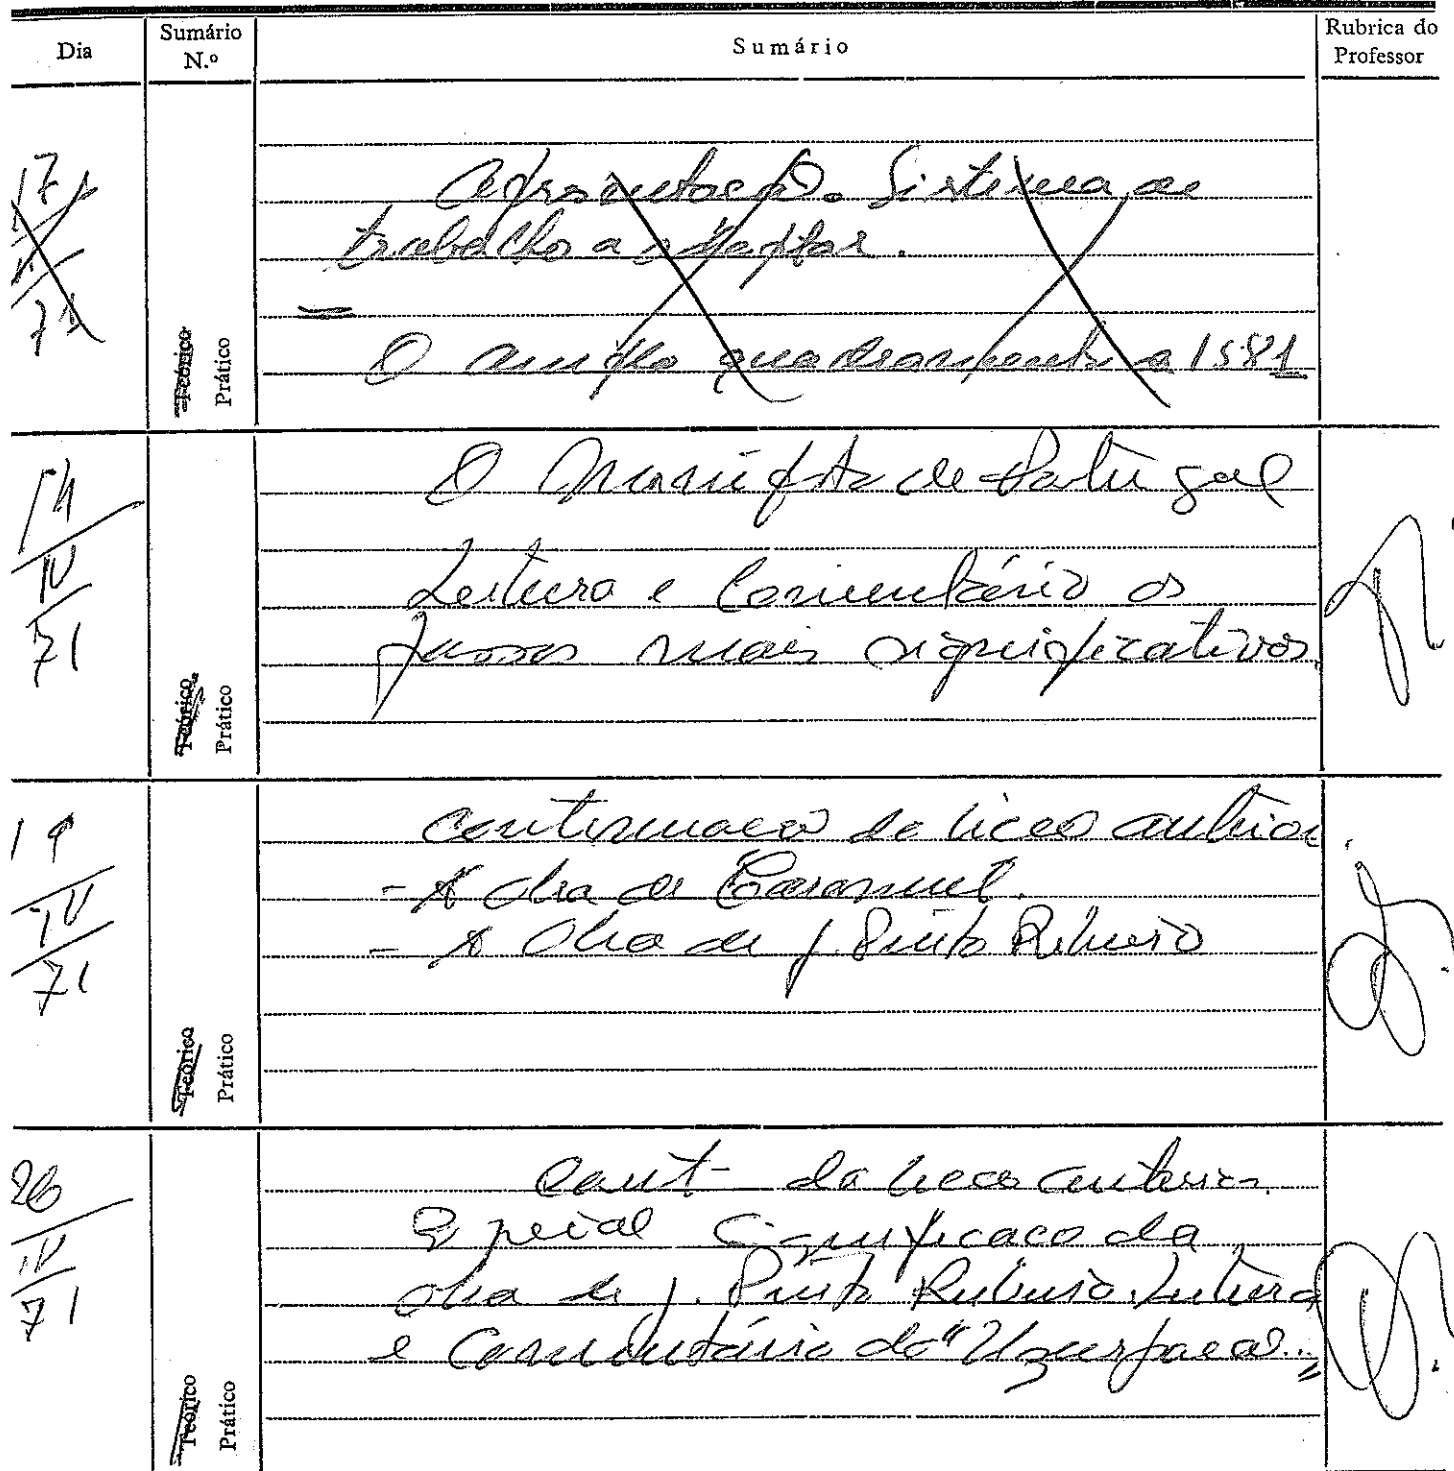 Dia
Sumário N.º
Sumário
Rubrica do Professor
17
71
Teórico
Prático
Apresentação. Sistema de
trabalho a adaptar.
O quadro a 1581
14
IV
71
Teórico
Prático
O Manifesto de Portugal
Leitura e Comentário os
passos mais significativos.
19
IV
71
Teórico
Prático
Continuação da lição anterior
- A obra de Caramuel.
- A Obra de J. Pinto Ribeiro
26
IV
71
Teórico
Prático
Cont- da lição anterior.
Especial Significação da
obra de J. Pinto Ribeiro. Leitura
e Comentário da "Uzurpação..."